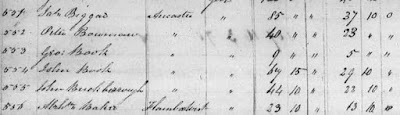 551 Jas Biggar Ancaster " 15 " " 27 10 0
552 Peter Bowman " " 40 " " 23 " "
553 Geo: Book " " 9 " " 5 " "
554 John Book " " 69 15 " 29 10 "
555 John Buckborough " " 44 10 " 22 10 "
556 Baker Flamboro " 23 10 " 13 10 "